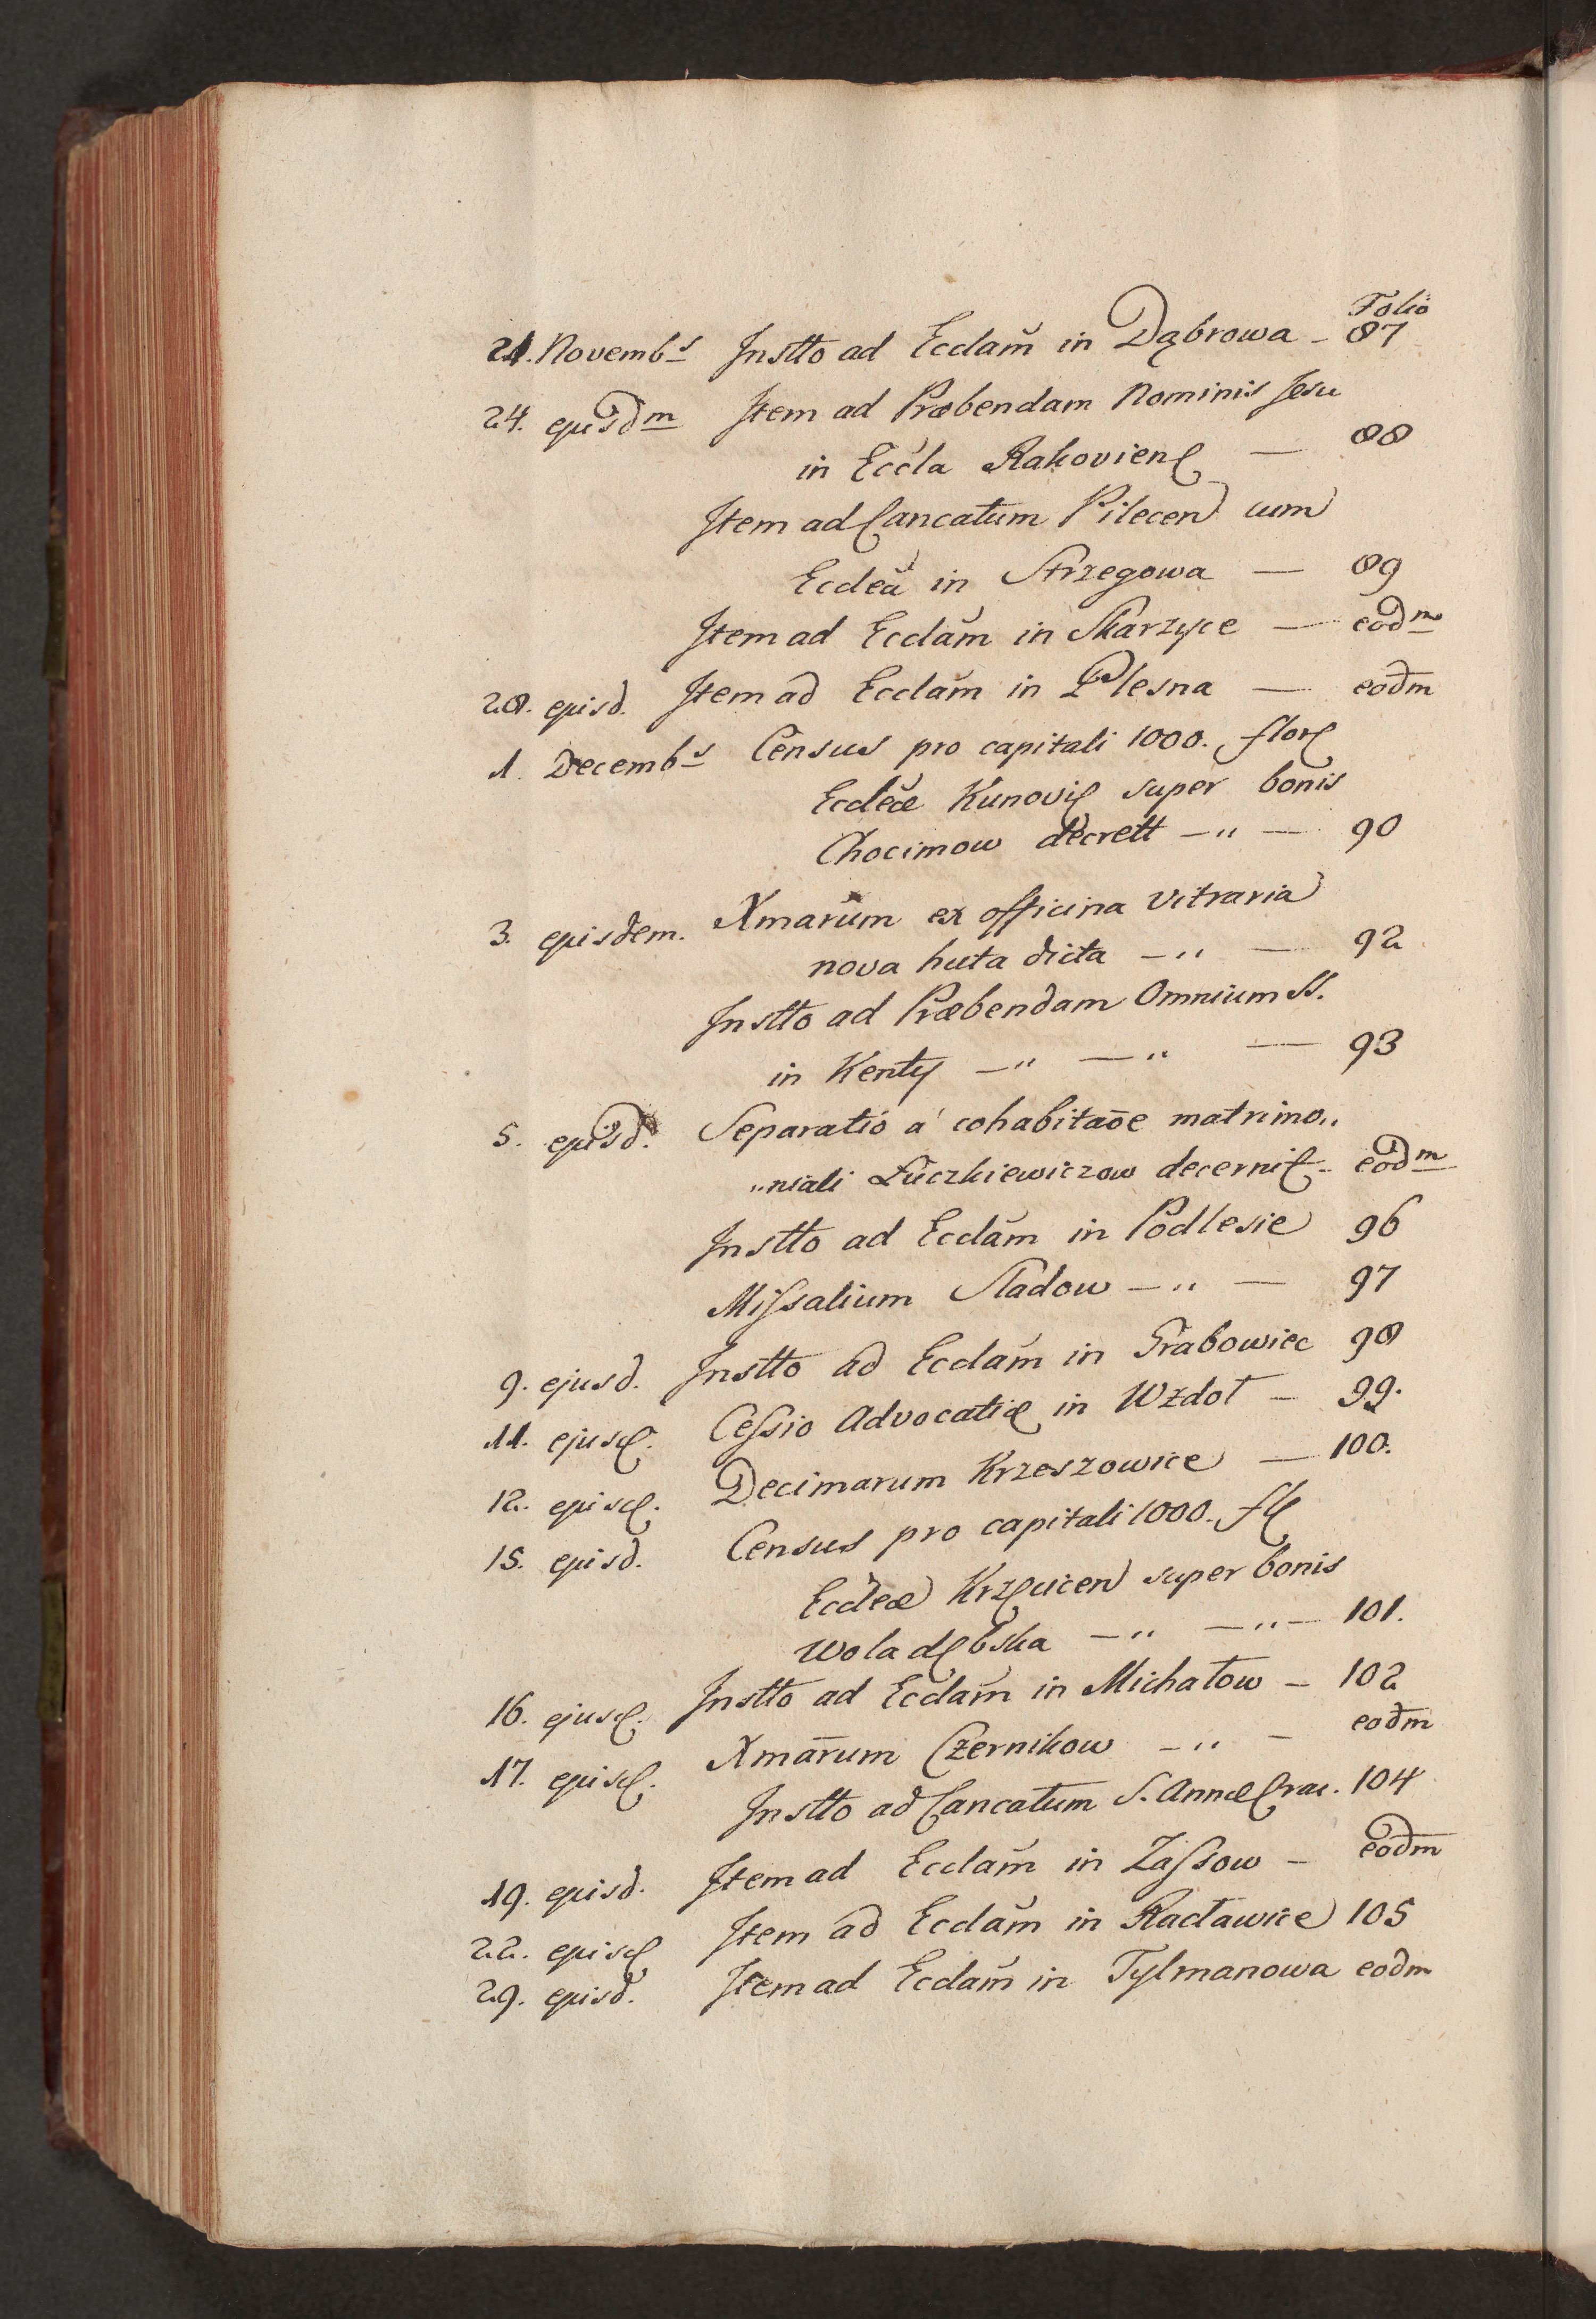 Folio
21. Novemb<sup>s</sup> Instto ad Eccłam in Dąbrowa – 87
24. ejusd<sup>m</sup> Item ad Præbendam Nominis Jesu
in Eccła Rakovien — 88
Item ad Cancatum Pilecen cum
Eccleã in Strzegowa — 89
Item ad Eccłam in Skarzyce — eod<sup>m</sup>
28. ejusd. Item ad Eccłam in Plesna — eodm
1. Decemb<sup>s</sup> Census pro capitali 1000. flor
Eccleæ Kunovi super bonis
Chocimow decrett —„ — 90
3. ejusdem. Xmarum ex officina Vitraria
nova huta dicta —„ — 92
Instto ad Præbendam Omnium SS.
in Kenty —„ —„ — 93
5. ejusd. Separatio à cohabitaōe matrimo„
„niali Łuczkiewiczow decernit – eod<sup>m</sup>
Instto ad Eccłam in Podlesie 96
Missalium Sladow —„ — 97
9. ejusd. Instto ad Eccłam in Grabowiec 98
11. ejusd. Cessio Advocatiæ in Wzdoł – 99.
12. ejusd. Decimarum Krzeszowice — 100.
15. ejusd. Census pro capitali 1000. fl
Eccleæ Krzęcicen super bonis
Wola dębska —„ —„— 101.
16. ejusd. Instto ad Eccłam in Michałow – 102
17. ejusd. Xmarum Czernikow —„ – eodm
Instto ad Cancatum S. Annæ Crac. 104
19. ejusd. Item ad Eccłam in Zassow – eodm
22. ejusd Item ad Eccłam in Racławice 105
29. ejusd. Item ad Eccłam in Tylmanowa eodm